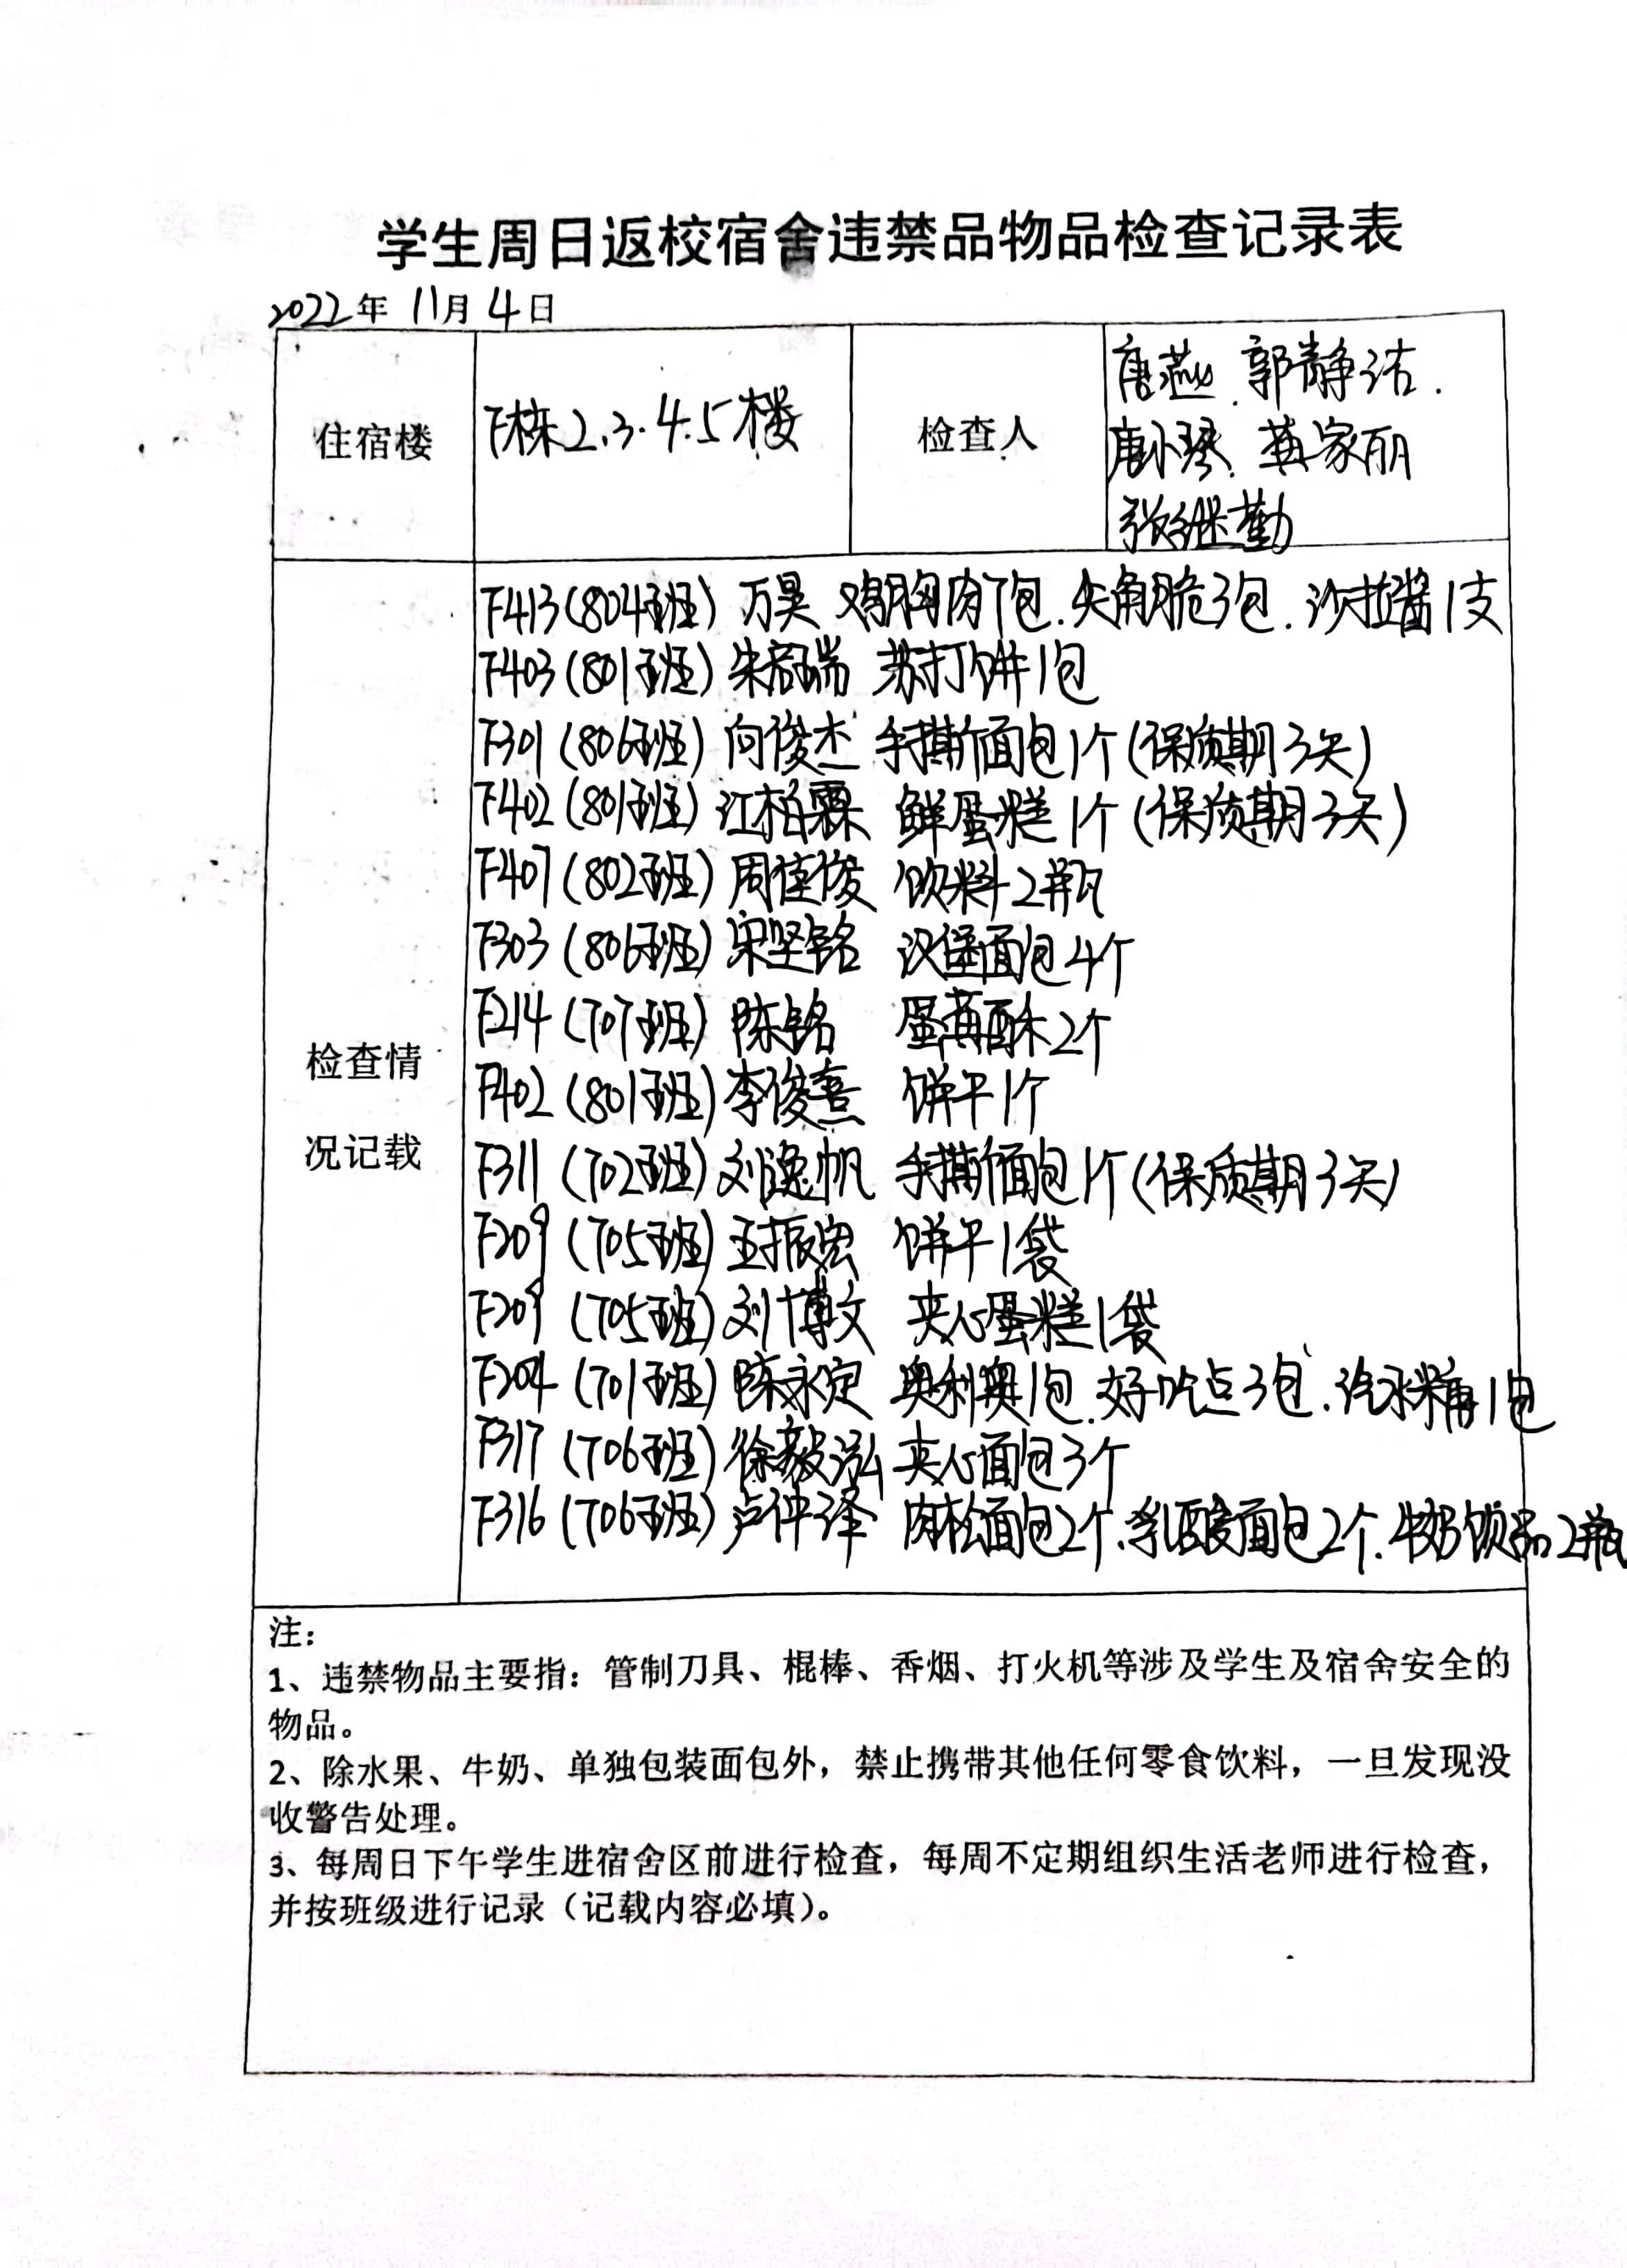 学生周日返校宿舍违禁品物品检查记录表
2022年 11月 4日
住宿楼
F栋2.3.4.5楼
检查人
唐燕.郭静洁.
唐小琴.龚家丽
张继勤
检查情
况记载
F413(804班) 万昊 鸡胸肉1包.尖角脆3包.沙拉酱1支
F403(801班) 朱高瑞 苏打饼1包
F301(806班) 向俊杰 手撕面包1个(保质期3天)
F402(801班) 江柏霖 鲜蛋糕1个(保质期3天)
F407(802班) 周佳俊 饮料2瓶
F303(806班) 宋坚铭 汉堡面包4个
F214(707班) 陈铭 蛋黄酥2个
F402(801班) 李俊熹 饼干1个
F311(702班) 刘逸帆 手撕面包1个(保质期3天)
F209(705班) 王振宏 饼干1袋
F209(705班) 刘博文 夹心蛋糕1袋
F204(701班) 陈永定 奥利奥1包.好吃点3包.汽水糖1包
F317(706班) 徐毅泓 夹心面包3个
F316(706班) 卢仲泽 肉松面包2个.乳酸面包2个.牛奶饮品2瓶
注：
1、违禁物品主要指：管制刀具、棍棒、香烟、打火机等涉及学生及宿舍安全的
物品。
2、除水果、牛奶、单独包装面包外，禁止携带其他任何零食饮料，一旦发现没
收警告处理。
3、每周日下午学生进宿舍区前进行检查，每周不定期组织生活老师进行检查，
并按班级进行记录（记载内容必填）。